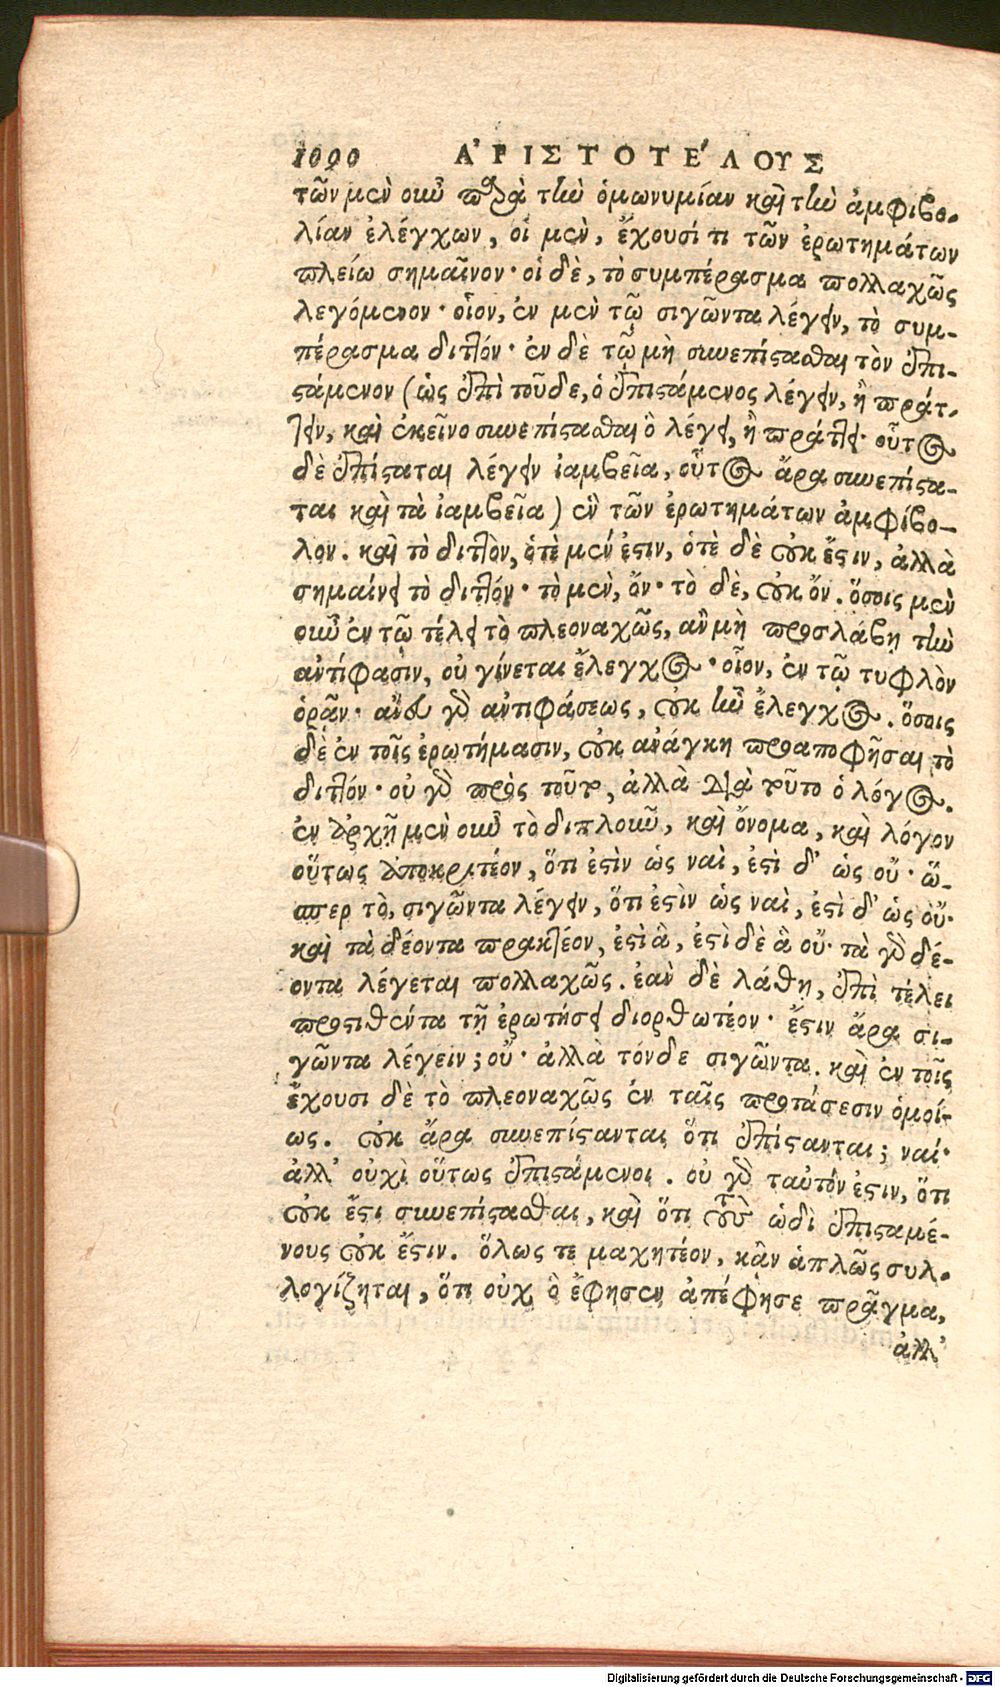 1090 ἈΡΙΣΤΟΤΈΛΟΥΣ
τῶν μὲν οὖν παρὰ τὴν ὁμωνυμίαν καὶ τὴν ἀμφιβο-
λίαν ἐλέγχων, οἱ μὲν, ἔχουσί τι τῶν ἐρωτημάτων
πλείω σημαῖνον· οἱ δὲ, τὸ συμπέρασμα πολλαχῶς
λεγόμενον· οἷον, ἐν μὲν τῷ σιγῶντα λέγειν, τὸ συμ-
πέρασμα διττόν· ἐν δὲ τῷ μὴ συνεπίστασθαι τὸν ἐπι-
στάμενον (ὡς ἐπὶ τοῦδε, ὁ ἐπιστάμενος λέγειν, ἢ πράτ-
τειν, καὶ ἐκεῖνο συνεπίστασθαι ὃ λέγει, ἢ πράττει· οὗτος
δὲ ἐπίσταται λέγειν ἰαμβεῖα, οὗτος ἄρα συνεπίστα-
ται καὶ τὰ ἰαμβεῖα) ἓν τῶν ἐρωτημάτων ἀμφίβο-
λον. καὶ τὸ διττὸν, ὁτὲ μέν ἐστιν, ὁτὲ δὲ οὐκ ἔστιν, ἀλλὰ
σημαίνει τὸ διττόν· τὸ μὲν, ὄν· τὸ δὲ, οὐκ ὄν. ὅσοις μὲν
οὖν ἐν τῷ τέλει τὸ πλεοναχῶς, ἂν μὴ προσλάβῃ τὴν
ἀντίφασιν, οὐ γίνεται ἔλεγχος· οἷον, ἐν τῷ τυφλὸν
ὁρᾶν· ἄνευ γὰρ ἀντιφάσεως, οὐκ ἦν ἔλεγχος. ὅσοις
δὲ ἐν τοῖς ἐρωτήμασιν, οὐκ ἀνάγκη προαποφῆσαι τὸ
διττόν· οὐ γὰρ πρὸς τοῦτο, ἀλλὰ διὰ τοῦτο ὁ λόγος.
ἐν ἀρχῇ μὲν οὖν τὸ διπλοῦν, καὶ ὄνομα, καὶ λόγον
οὕτως ἀποκριτέον, ὅτι ἐστὶν ὡς ναὶ, ἐστὶ δ' ὡς οὔ· ὥ-
σπερ τὸ, σιγῶντα λέγειν, ὅτι ἐστὶν ὡς ναὶ, ἐστὶ δ' ὡς οὔ·
καὶ τὰ δέοντα πρακτέον, ἐστὶ ἃ, ἐστὶ δὲ ἃ οὔ· τὰ γὰρ δέ-
οντα λέγεται πολλαχῶς. ἐὰν δὲ λάθῃ, ἐπὶ τέλει
προστιθέντα τῇ ἐρωτήσει διορθωτέον· ἔστιν ἄρα σι-
γῶντα λέγειν; οὔ· ἀλλὰ τόνδε σιγῶντα. καὶ ἐν τοῖς
ἔχουσι δὲ τὸ πλεοναχῶς ἐν ταῖς προτάσεσιν ὁμοί-
ως. οὐκ ἄρα συνεπίστανται ὅτι ἐπίστανται; ναί·
ἀλλ' οὐχὶ οὕτως ἐπιστάμενοι. οὐ γὰρ ταὐτόν ἐστιν, ὅτι
οὐκ ἔστι συνεπίστασθαι, καὶ ὅτι τοὺς ὡδὶ ἐπισταμέ-
νους οὐκ ἔστιν. ὅλως τε μαχητέον, κἂν ἁπλῶς συλ-
λογίζηται, ὅτι οὐχ ὃ ἔφησεν ἀπέφησε πρᾶγμα,
ἀλλ'
Digitalisierung gefördert durch die Deutsche Forschungsgemeinschaft - DFG